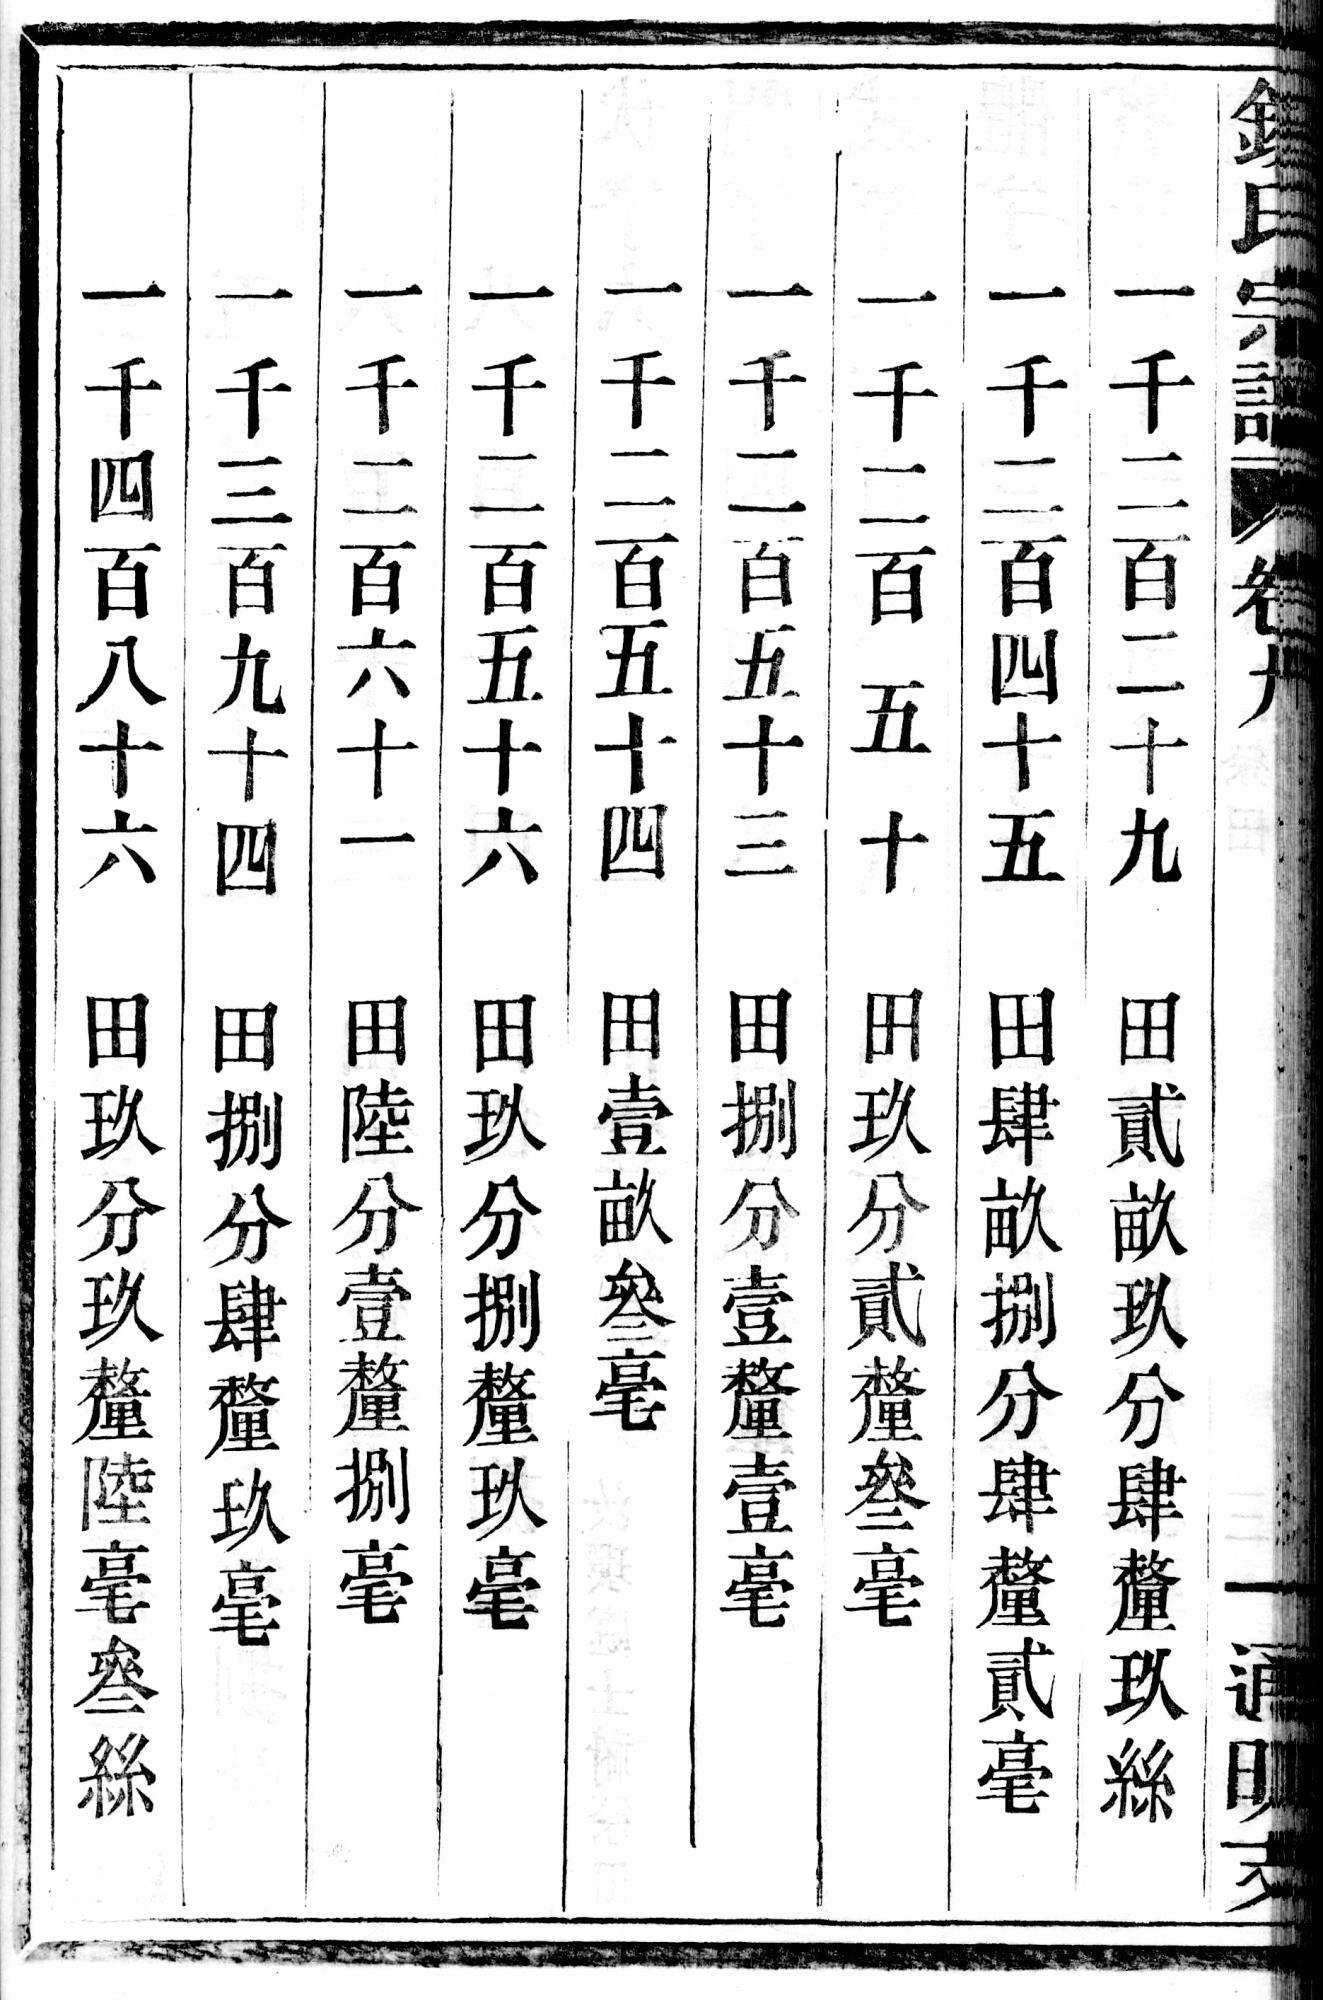 氏宗譜 卷九 一 通明支
一千二百二十九 田貳畝玖分肆釐玖絲
一千二百四十五 田肆畝捌分肆釐貳毫
一千二百五十 田玖分貳釐叄毫
一千二百五十三 田捌分壹釐壹毫
一千二百五十四 田壹畝叄毫
一千二百五十六 田玖分捌釐玖毫
一千二百六十一 田陸分壹釐捌毫
一千三百九十四 田捌分肆釐玖毫
一千四百八十六 田玖分玖釐陸毫叄絲